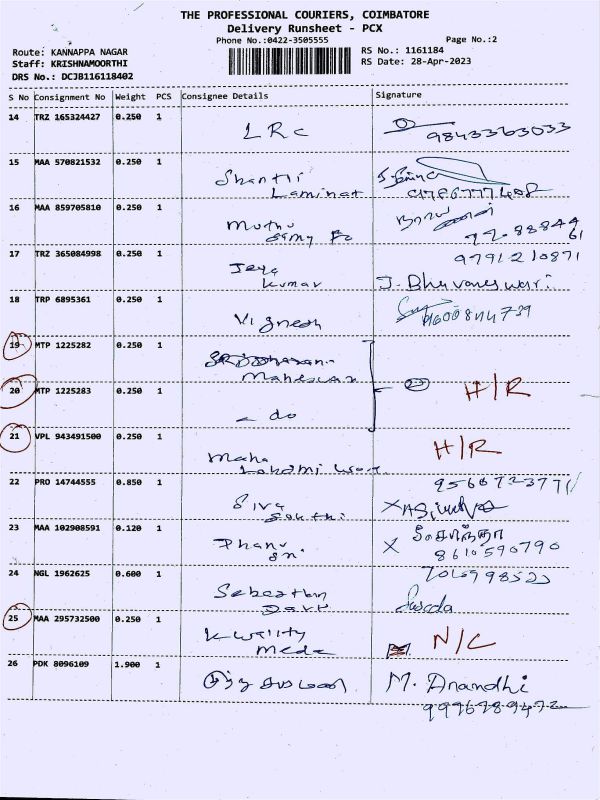 THE PROFESSIONAL COURIERS, COIMBATORE
Delivery Runsheet - PCX
Phone No.:0422-3505555 Page No.:2
Route: KANNAPPA NAGAR RS No.: 1161184
Staff: KRISHNAMOORTHI RS Date: 28-Apr-2023
DRS No.: DCJB116118402
S No Consignment No Weight PCS Consignee Details Signature
14 TRZ 165324427 0.250 1 LRC
9843363033
15 MAA 570821532 0.250 1 Shanthi
Laminat
16 MAA 859705810 0.250 1 Muthu
samy
17 TRZ 365084998 0.250 1 Jeya 9791210871
Kumar J. Bhuvaneswari
18 TRP 6895361 0.250 1 Vignesh
19 MTP 1225282 0.250 1
Maheswaran
20 MTP 1225283 0.250 1 H/R
do
21 VPL 943491500 0.250 1 Maha H/R
Lakshmi
22 PRO 14744555 0.850 1 Siva
Sakthi
23 MAA 102908591 0.120 1 Phanu
8610590790
24 NGL 1962625 0.600 1
25 MAA 295732500 0.250 1 Kwality N/C
Meda
26 PDK 8096109 1.900 1 M. Anandhi